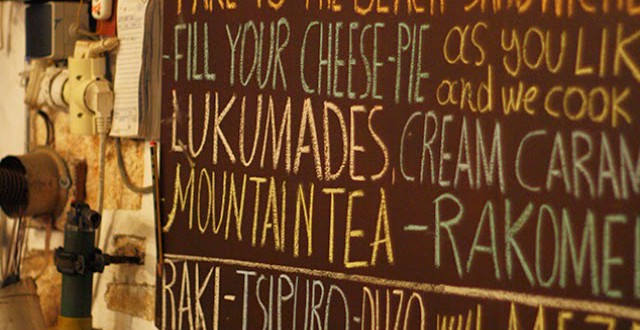 TAKE TO THE BEACH SANDWICHE
-FILL YOUR CHEESE-PIE as you LIK
and we cook
LUKUMADES, CREAM CARAM
MOUNTAIN TEA - RAKOME
RAKI-TSIPURO-OUZO with MEZ